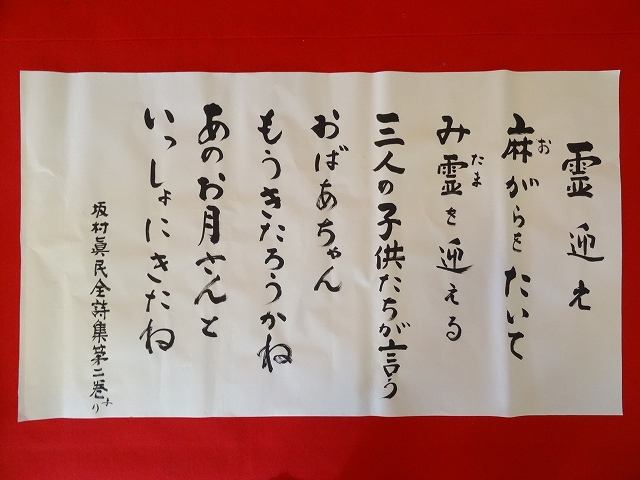 霊迎え
麻がらをたいて
お
み霊を迎える
たま
三人の子供たちが言う
おばあちゃん
もうきたろうかね
あのお月さんと
いっしょにきたね
坂村眞民全詩集第二巻より